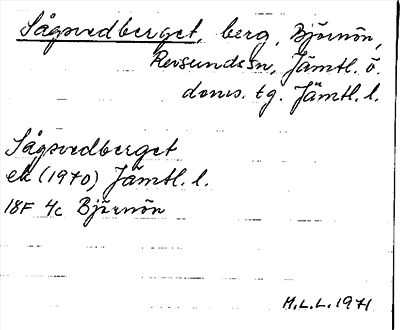 Sågsvedberget, berg, Björnön,
Revsunds sn, Jämtl. ö.
doms. tg. Jämtl. l.
Sågsvedberget
ek (1970) Jämtl. l.
18F 4c Björnön
M.L.L. 1971